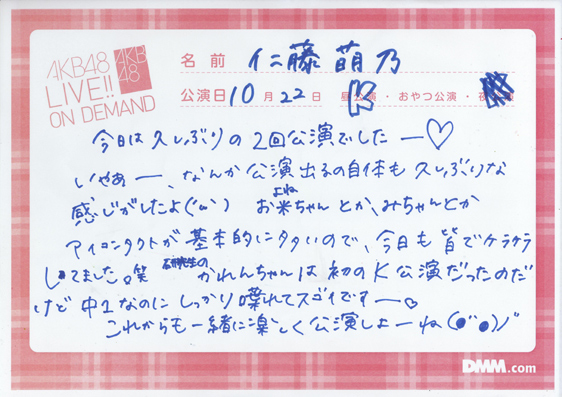 AKB48
LIVE!!
ON DEMAND
AKB
48
名前 仁藤萌乃
公演日 10月22日 昼公演・おやつ公演・夜
K
今日は久しぶりの2回公演でしたー♡
いやぁー、なんか公演出るの自体も久しぶりな
感じがしたよ('ω') お米ちゃんとか、みちゃんとか
よね
アイコンタクトが基本的に多いので、今日も皆でケラケラ
してました。笑 研究生のかれんちゃんは初のK公演だったのだ
けど中1なのにしっかり喋れてスゴイですー♡
これからも一緒に楽しく公演しよーね(●'●)ノ"
DMM.com